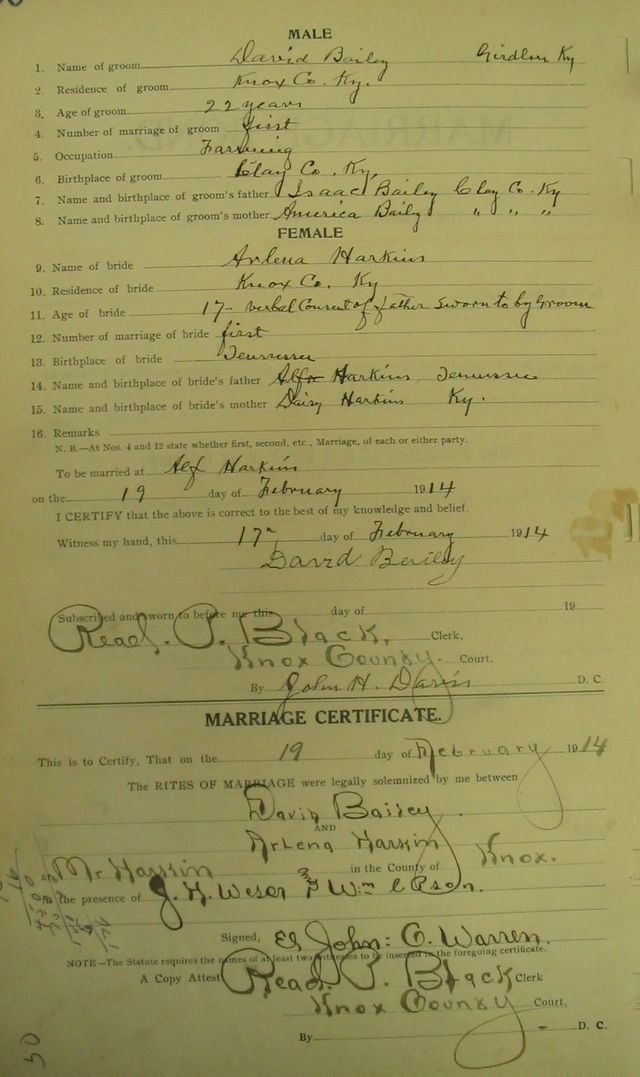 MALE
1. Name of groom David Bailey Girdler Ky
2. Residence of groom Knox Co. Ky.
3. Age of groom 22 years
4. Number of marriage of groom first
5. Occupation Farming
6. Birthplace of groom Clay Co. Ky.
7. Name and birthplace of groom's father Isaac Bailey Clay Co. Ky
8. Name and birthplace of groom's mother America Baily " " "
FEMALE
9. Name of bride Arlena Harkins
10. Residence of bride Knox Co. Ky
11. Age of bride 17- verbal Consent of father sworn to by Groom
12. Number of marriage of bride first
13. Birthplace of bride Tennessee
14. Name and birthplace of bride's father Alfx Harkins Tennessee
15. Name and birthplace of bride's mother Daisy Harkins Ky.
16. Remarks
N. B.—At Nos. 4 and 12 state whether first, second, etc., Marriage, of each or either party.
To be married at Alf Harkins
on the 19 day of February 1914
I CERTIFY that the above is correct to the best of my knowledge and belief.
Witness my hand, this 17" day of February 1914
David
Subscribed and sworn to before me this day of 19
Read. P. Black, Clerk,
Knox County. Court.
By John H. Davis D. C.
MARRIAGE CERTIFICATE.
This is to Certify, That on the 19 day of February 1914
The RITES OF MARRIAGE were legally solemnized by me between
David Bailey.
AND
Arlena Harkin
Mr Harkin in the County of Knox.
the presence of J. H. &
Signed, John: C. Warren.
NOTE—The Statute requires the names of at least two witnesses to be inserted in the foregoing certificate.
A Copy Attest Read. P. Black Clerk
Knox County Court,
By D. C.
50